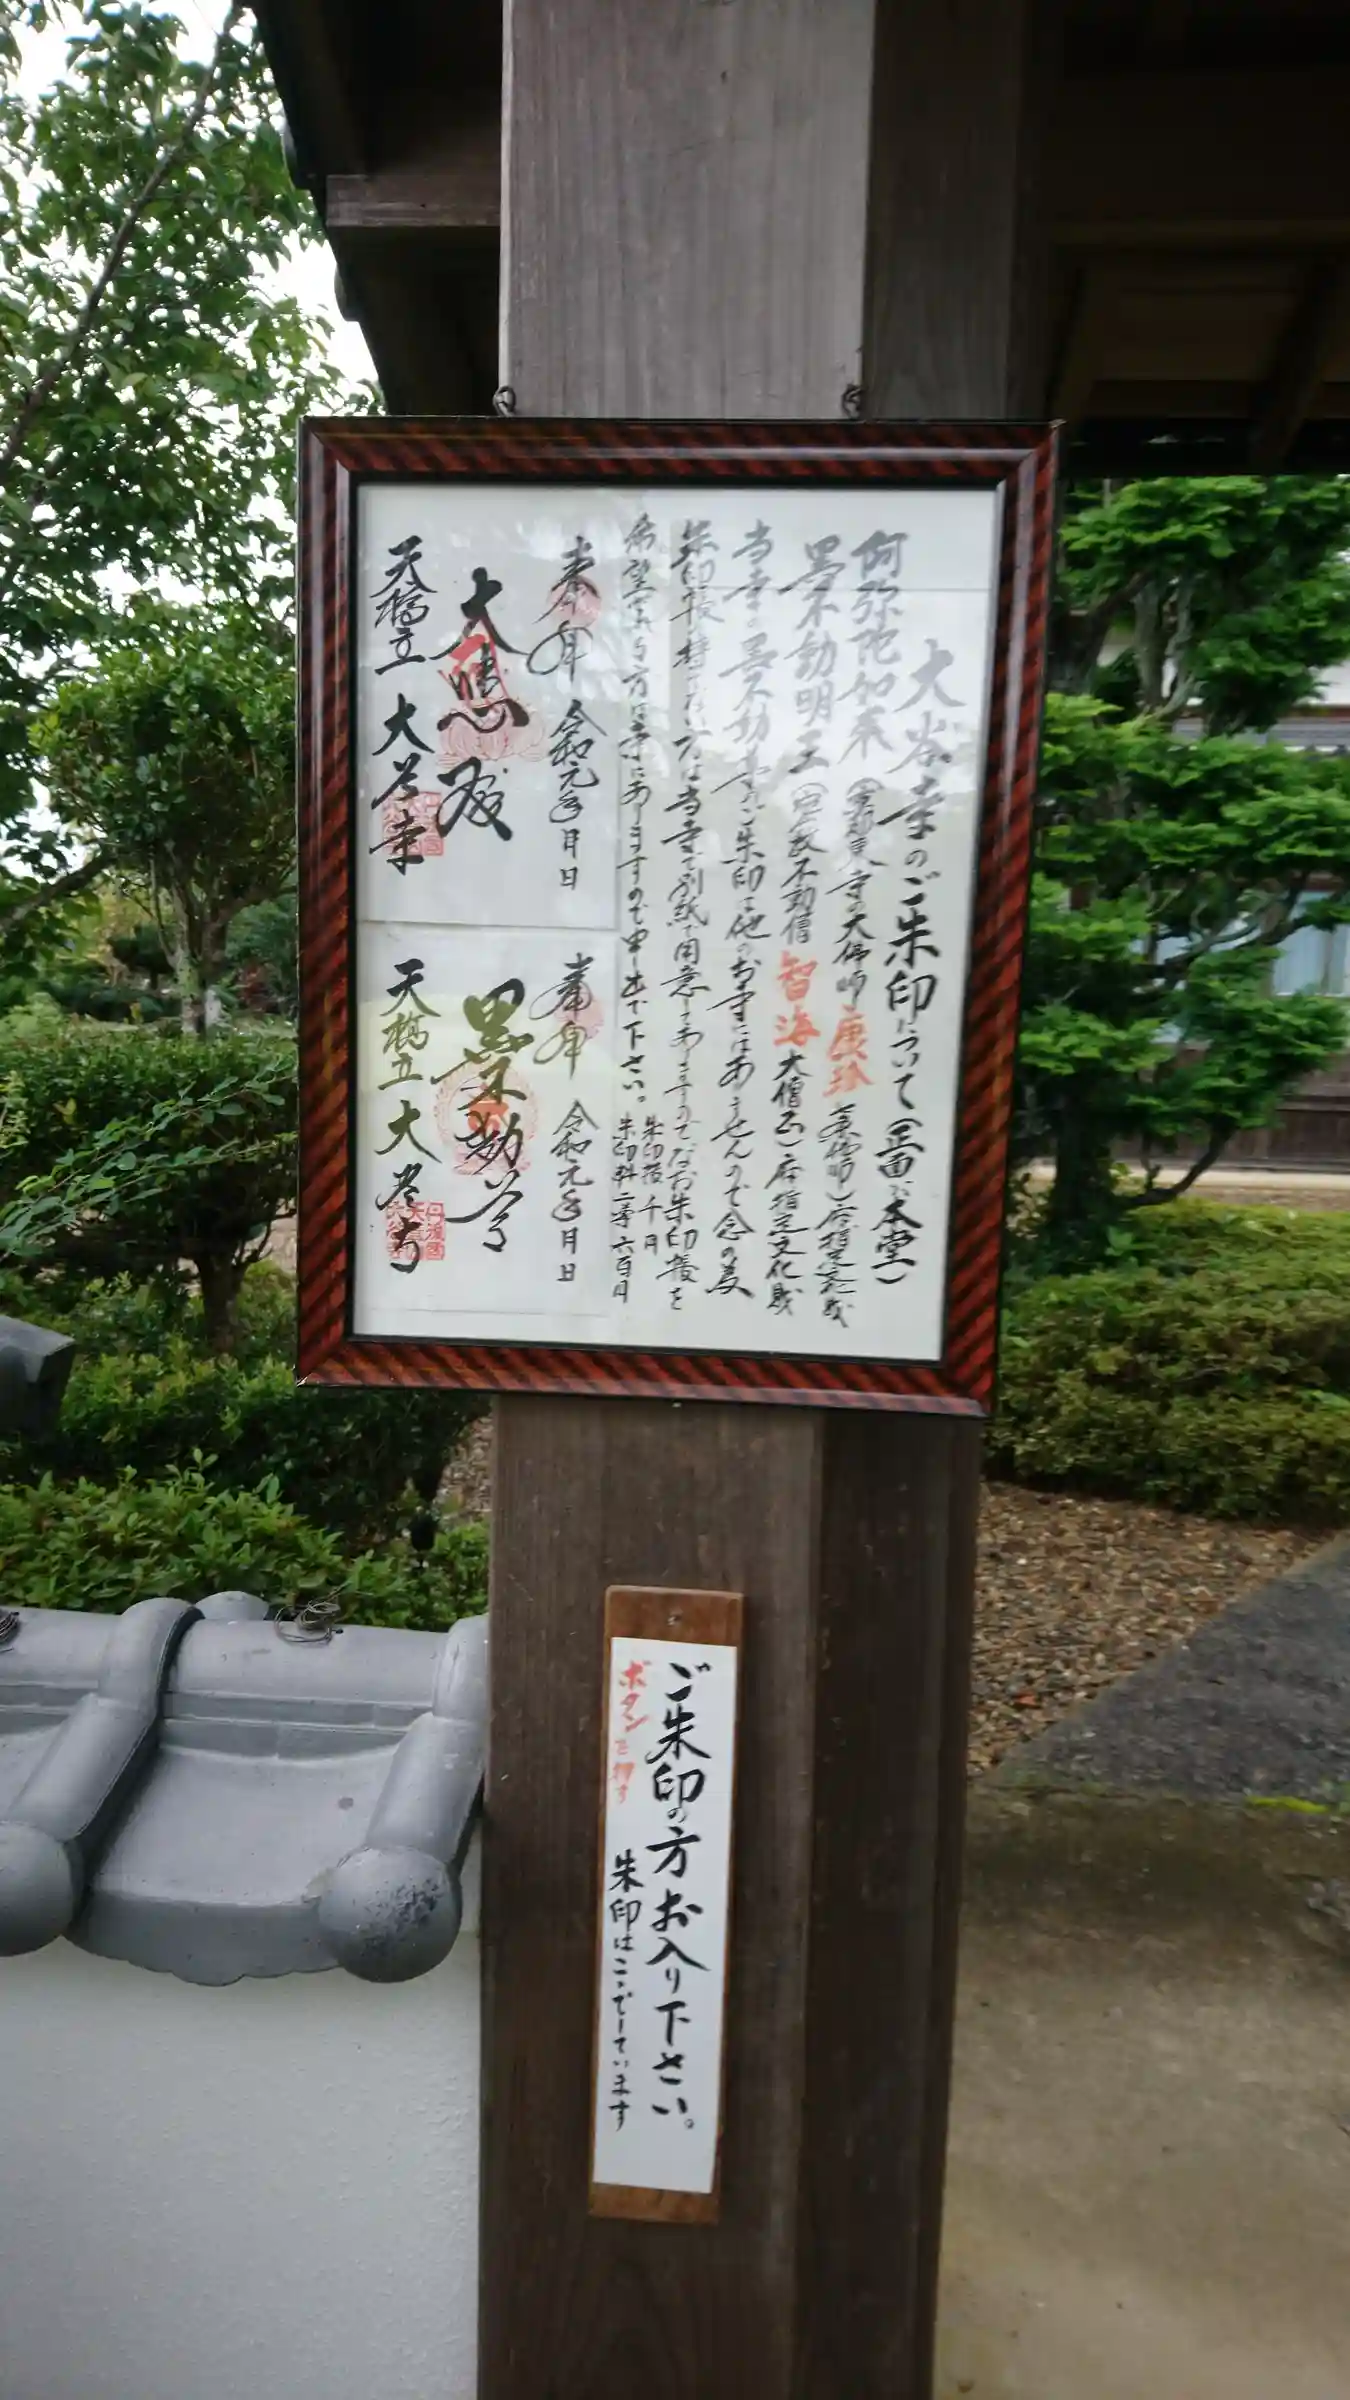 大谷寺のご朱印について(正面が本堂)
阿弥陀如来(京都東寺の大佛師康珍 佛師)府指定文化財
墨不動明王( 不動僧智海大僧正)府指定文化財
当寺の墨不動尊のご朱印は他のお寺にはありませんので念の為
朱印帳持てない方は当寺で別紙で用意してありますのでなお朱印帳を
希望される方は寺にありますので申し出て下さい。
朱印帳 千円
朱印料 六百円
奉拝 令和元年 月 日
大悲殿
天橋立 大谷寺
奉拝 令和元年 月 日
墨不動尊
天橋立 大谷寺
ご朱印の方お入り下さい。
ボタンを押す 朱印はここでしています